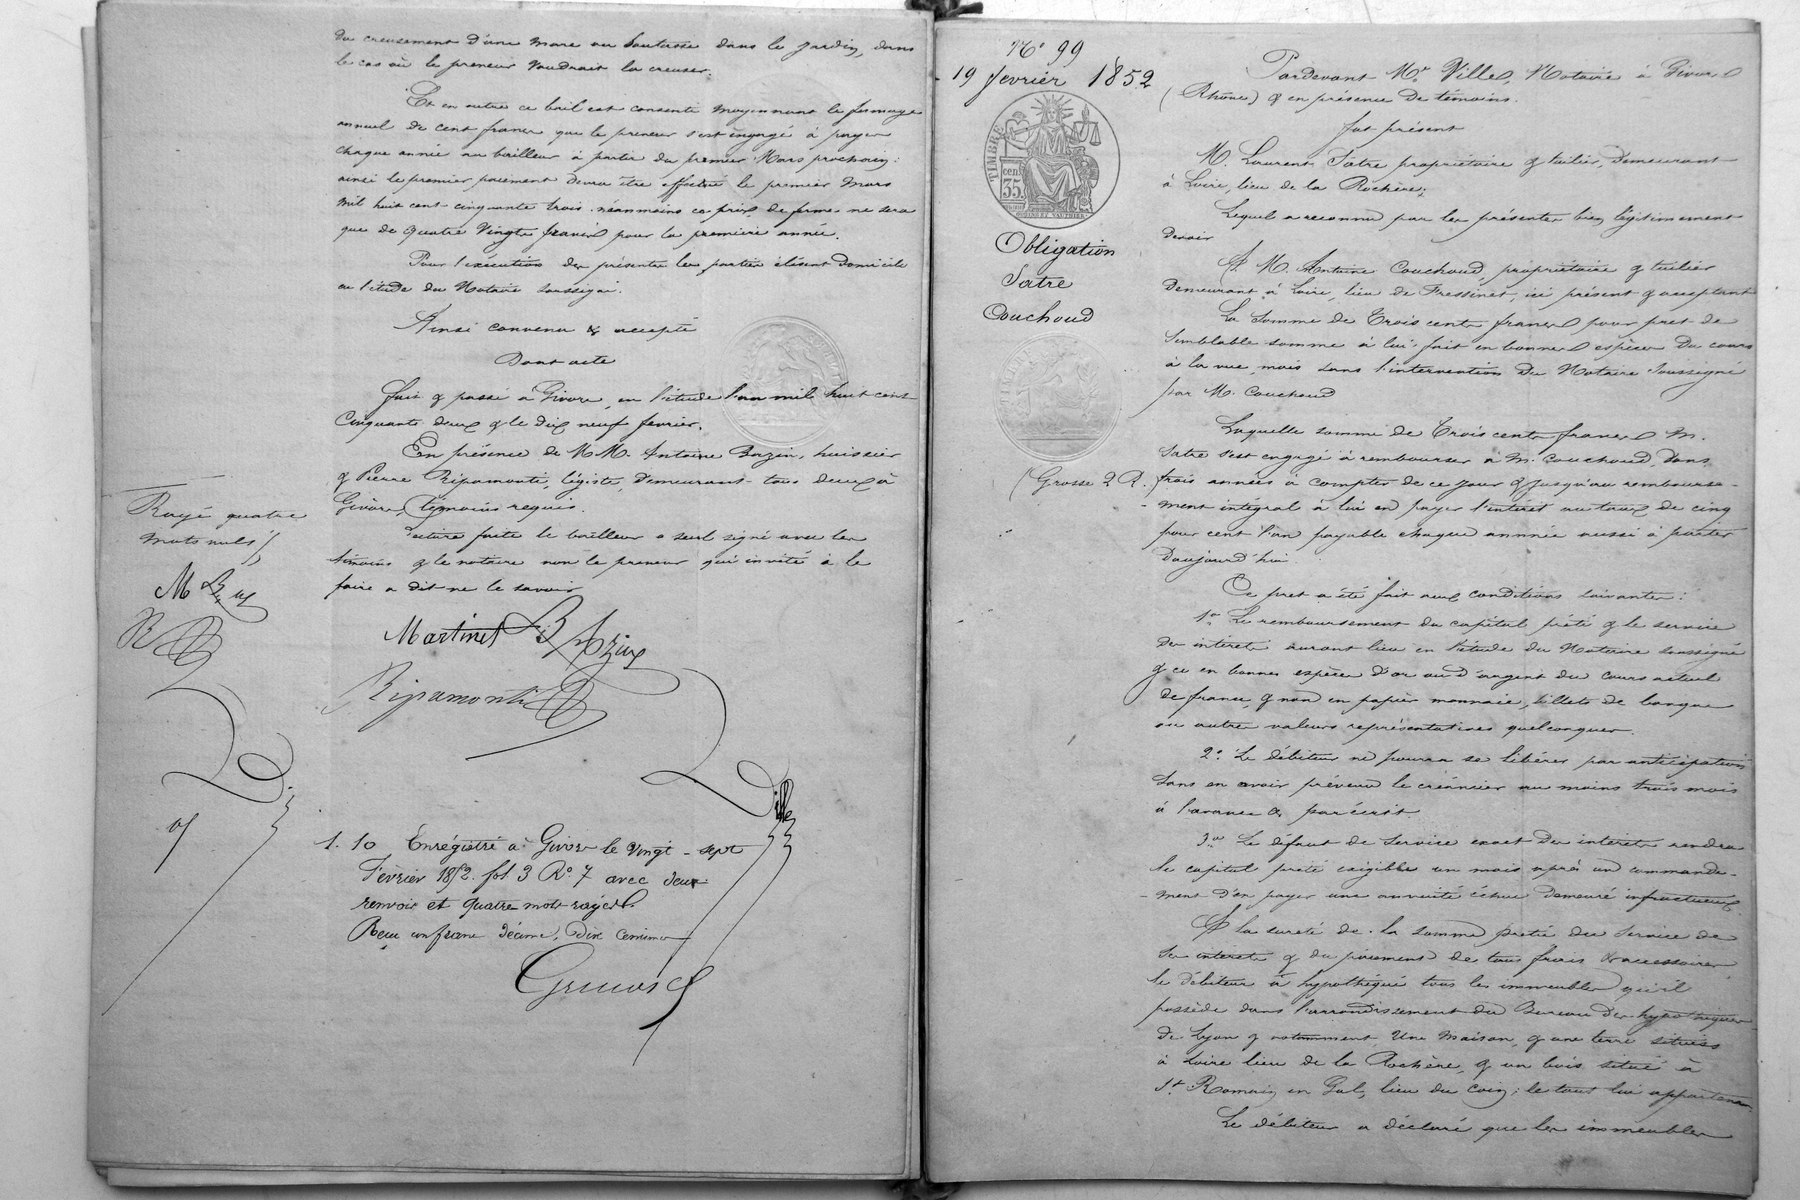 du creusement d'une mare ou boutasse dans le jardin, dans
le cas où le preneur voudrait la creuser.
Et en outre ce bail est consenti moyennant le fermage
annuel de cent francs que le preneur s'est engagé à payer
chaque année au bailleur à partir du premier Mars prochain:
ainsi le premier paiement devra être effectué le premier Mars
mil huit cent cinquante trois. néanmoins ce prix de ferme ne sera
que de quatre vingts francs pour la première année.
Pour l'exécution des présentes les parties élisent domicile
en l'étude du Notaire soussigné.
Ainsi convenu & accepté
Dont acte
fait & passé à Givors, en l'étude l'an mil huit cent
cinquante deux & le dix neuf février.
En présence de MM. Antoine Bazin, huissier
& Pierre Ripamonti, légiste, demeurant tous deux à
Givors, témoins requis.
Lecture faite le bailleur a seul signé avec les
témoins & le notaire non le preneur qui invité à le
faire a dit ne le savoir
Rayé quatre
mots nuls
M
R
Martinet Bazin
Ripamonti
Ville
1. 10 Enrégistré à Givors le vingt-sept
Février 1852. fol. 3 Ro. 7 avec deux
renvois et quatre mots rayés.
Reçu un franc décime, dix centimes
No 99
19 février 1852
TIMBRE
cen.
35
Obligation
Satre
Couchoud
(Grosse 2 R.
Pardevant Me Ville, Notaire à Givors
(Rhône) & en présence de témoins.
fut présent
M. Laurent Satre propriétaire & tuilier, demeurant
à Loire, lieu de la Rochère;
Lequel a reconnu par les présentes bien légitimement
devoir
A M. Antoine Couchoud, propriétaire & tuilier
demeurant à Loire, lieu de Fressinet, ici présent & acceptant
La somme de Trois cents francs pour prêt de
semblable somme à lui fait en bonnes espèces du cours
à la vue mais sans l'intervention du Notaire soussigné
par M. Couchoud
Laquelle somme de Trois cents francs M.
Satre s'est engagé à rembourser à M. Couchoud, dans
trois années à compter de ce jour & jusqu'au rembourse-
-ment intégral à lui en payer l'intérêt au taux de cinq
pour cent l'an payable chaque année aussi à partir
d'aujourd'hui.
Ce prêt a été fait aux conditions suivantes:
1o Le remboursement du capital prêté & le service
des intérêts auront lieu en l'étude du Notaire soussigné
& ce en bonnes espèces d'or ou d'argent du cours actuel
de france & non en papier monnaie, billets de banque
ou autres valeurs représentatives quelconques.
2o Le débiteur ne pourra se libérer par anticipation
sans en avoir prévenu le créancier au moins trois mois
à l'avance & par écrit.
3o Le défaut de service exact des intérêts rendra
le capital prêté exigible un mois après un commande-
-ment d'en payer une annuité échue demeuré infructueux.
A la sureté de la somme prêtée du service de
ses intérêts & du paiement de tous frais & accessoires
le débiteur a hypothéqué tous les immeubles qu'il
possède dans l'arrondissement du Bureau des hypothèques
de Lyon & notamment, Une maison, & une terre situées
à Loire lieu de la Rochère, & un bois situé à
St Romain en Gal, lieu du Coin; le tout lui appartenant
Le débiteur a déclaré que les immeubles